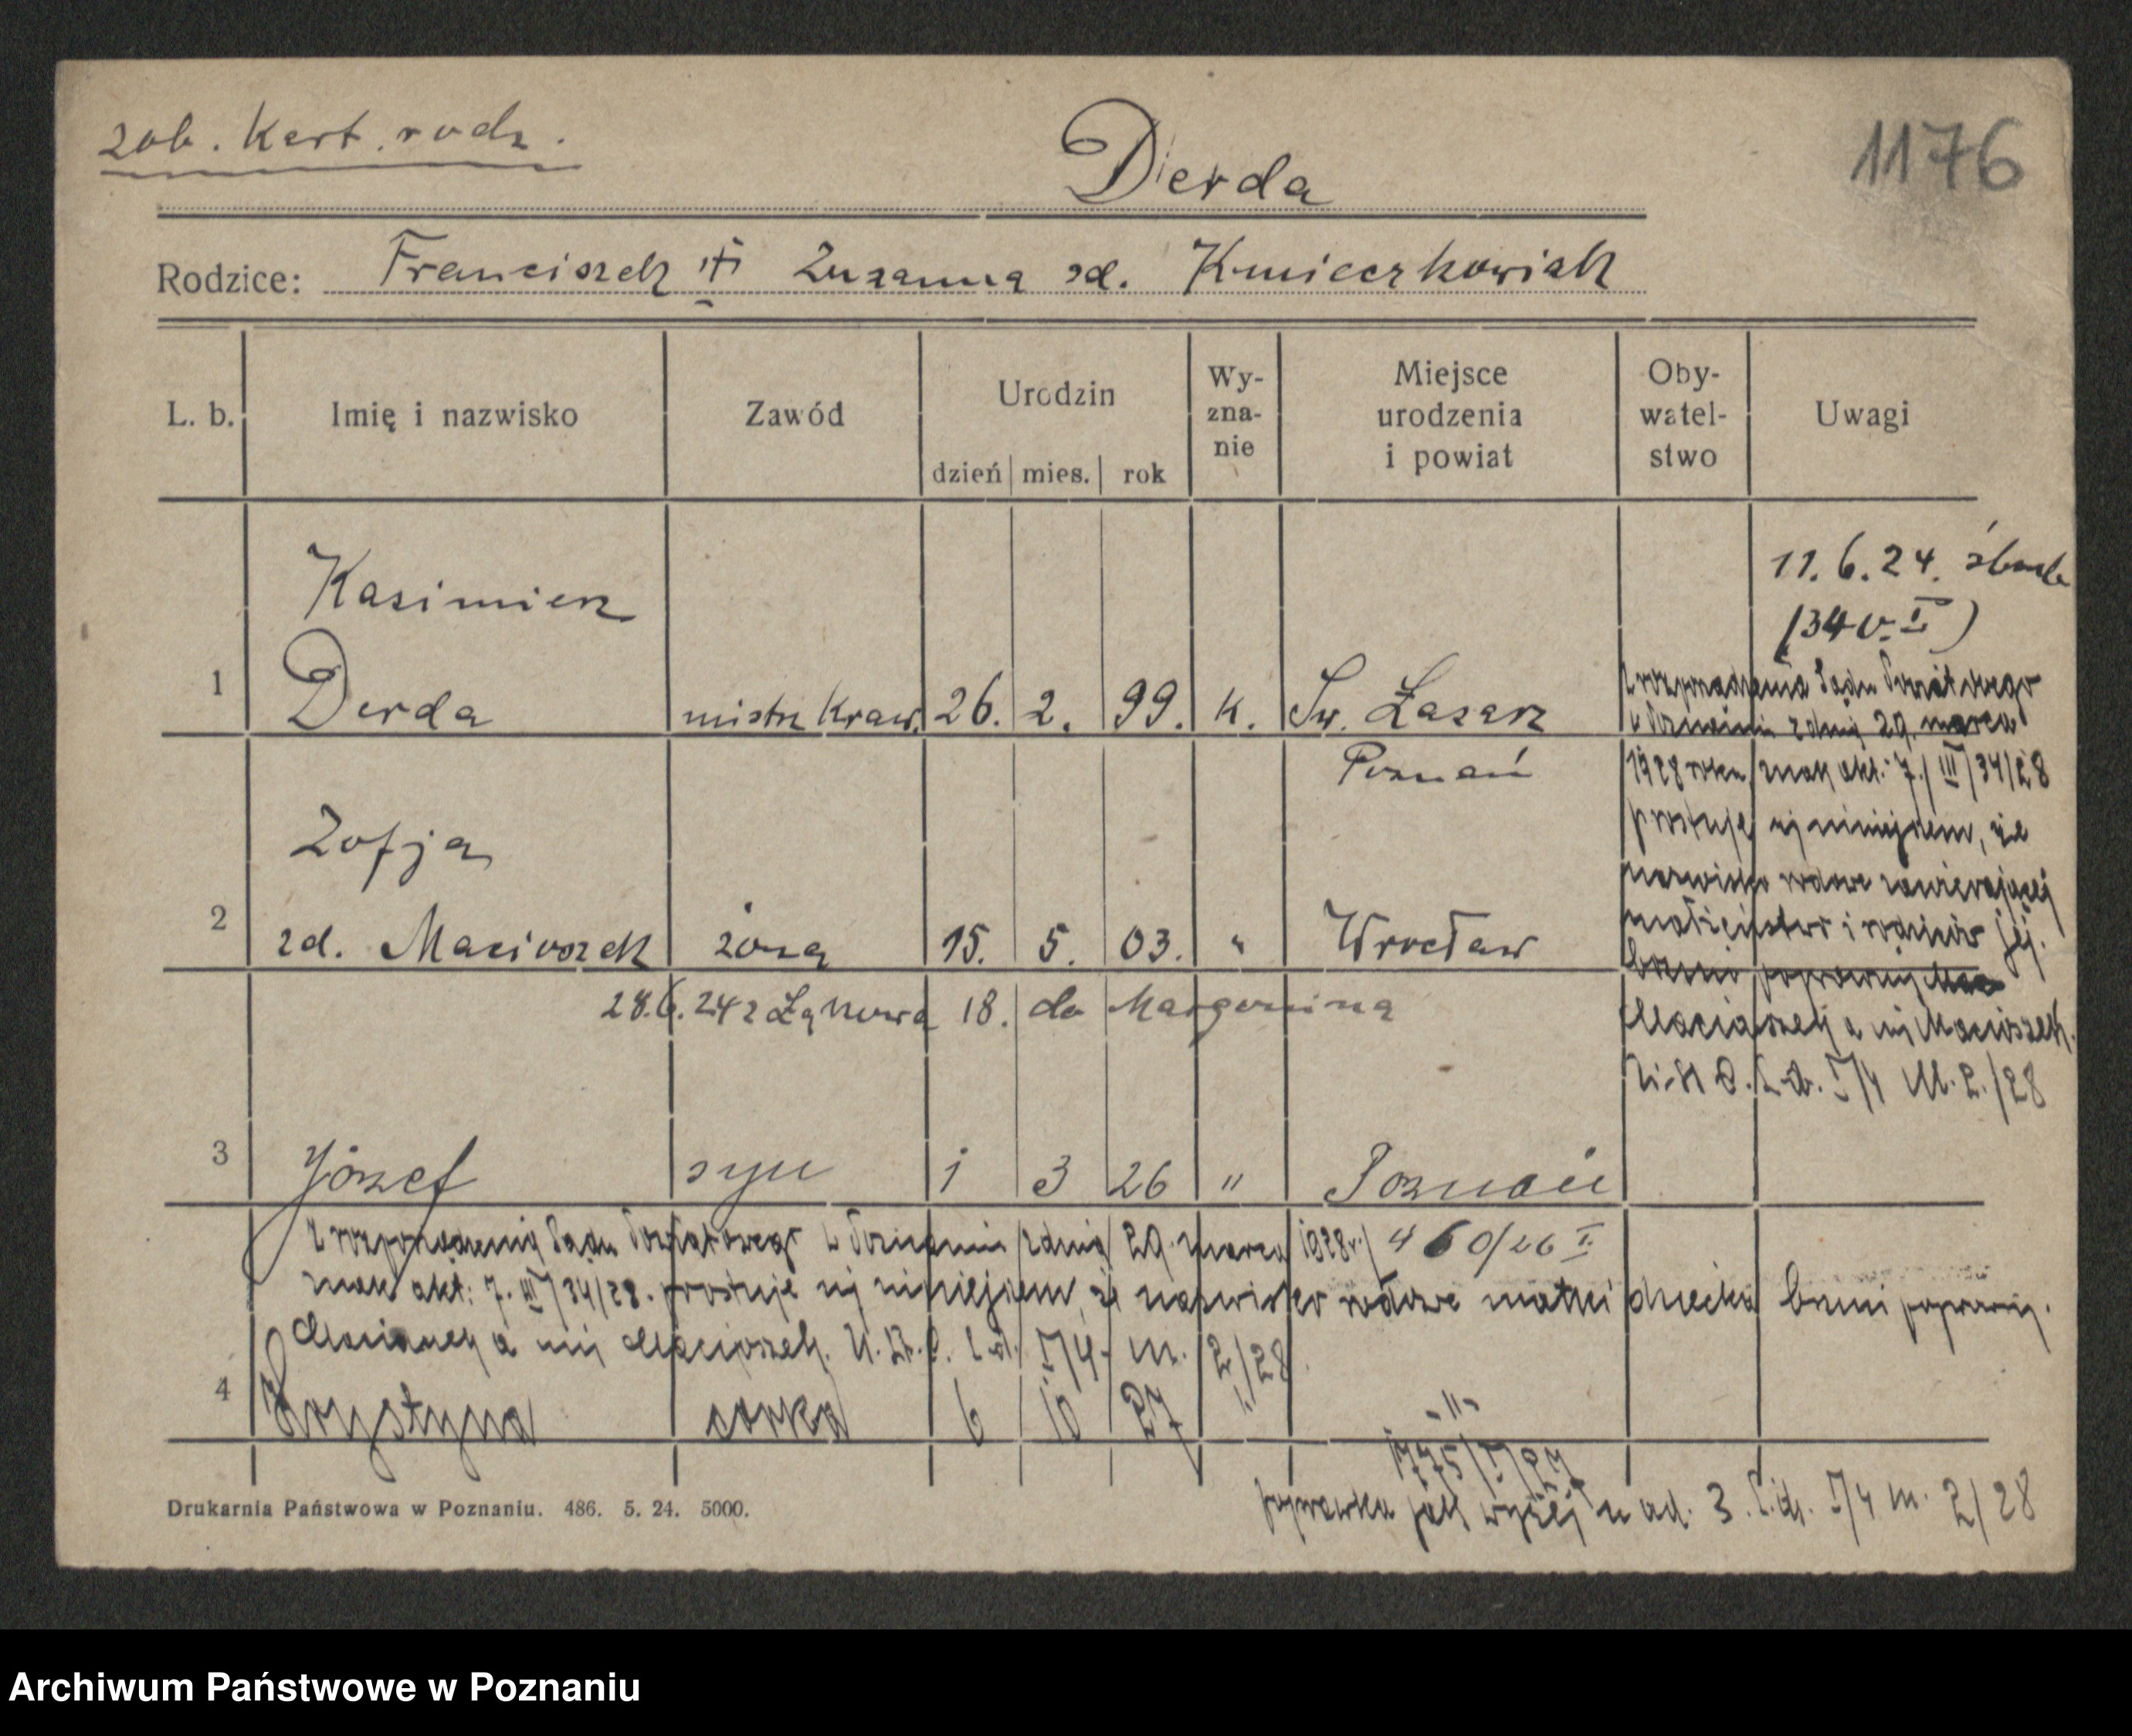 zob. Kart. rodz.
Derda
1176
Rodzice: Franciszek i Zuzanna zd. Kmieczkowiak
L. b.
Imię i nazwisko
Zawód
Urodzin
dzień mies. rok
Wy-
zna-
nie
Miejsce
urodzenia
i powiat
Oby-
watel-
stwo
Uwagi
11. 6. 24.
(340. I)
Kasimierz
1 Derda mistrz Kraw. 26. 2. 99. k. Św. Łazarz
Poznań
Z rozporządzenia Sądu Powiatowego
w Poznaniu z dnia 29. marca
1928 roku, znak akt.: 7./III/34/28
prostuje się niniejszem, że
nazwisko rodowe zawierającej
małżeństwo i rodziców jej.
brzmi poprawnie
Maciaszek a nie Macioszek.
I/4 M. 2./28
Zofja
2 zd. Macioszek żona 15. 5. 03. " Wrocław
28. 6. 24 z Łąkowa 18. do Margonina
3 Józef syn 1 3 26 " Poznań
460/26 I
Z rozporządzenia Sądu Powiatowego w Poznaniu z dnia 29. marca 1928 r.
znak akt: 7. III/34/28. prostuje się niniejszem, że nazwisko rodowe matki dziecka brzmi poprawnie.
Maciaszek a nie Macioszek. I/4 m. 2/28
4 Krystyna córka 6 10 27 " -"-
1775/I/27
poprawka jak wyżej u ad. 3. I/4 m. 2/28
Drukarnia Państwowa w Poznaniu. 486. 5. 24. 5000.
Archiwum Państwowe w Poznaniu